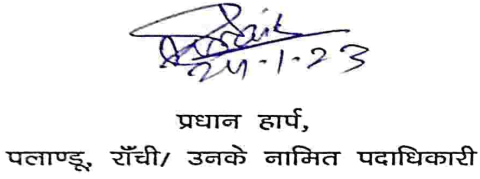 24.1.23
प्रधान हार्प,
पलाण्डू, राँची/ उनके नामित पदाधिकारी